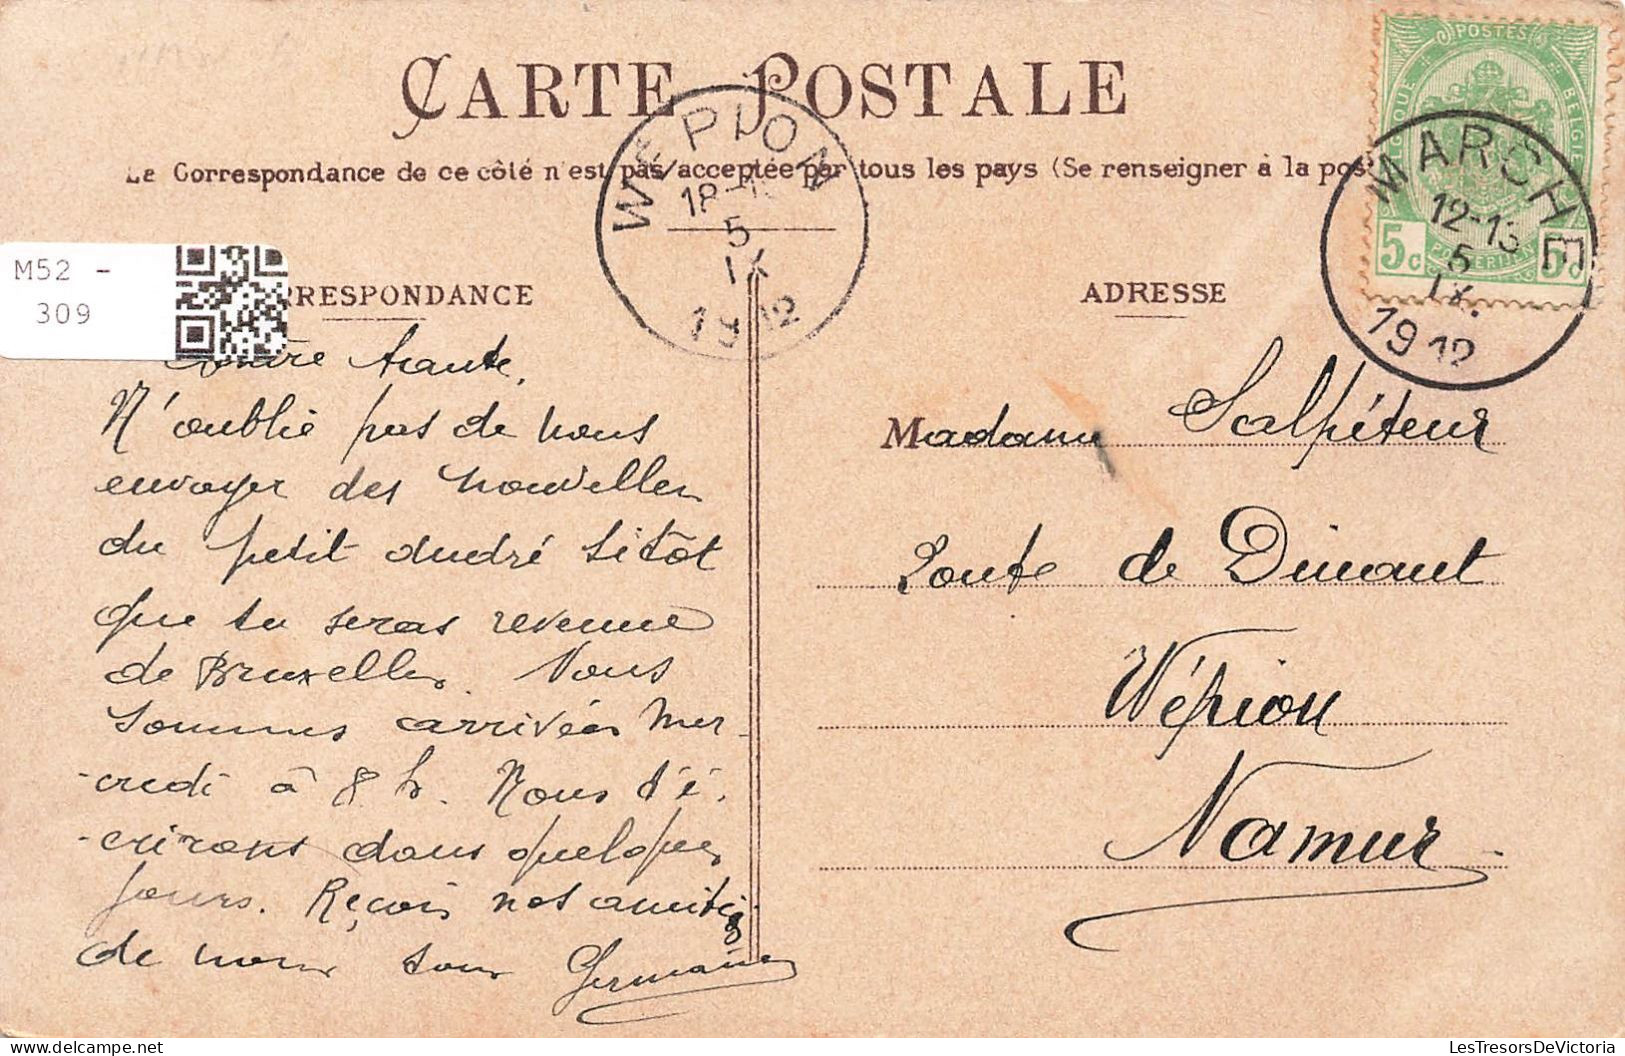 CARTE POSTALE
La Correspondance de ce côté n'est pas acceptée par tous les pays (Se renseigner à la pos
WÉPION
18-1
5
IX
1912
POSTES
BELGIQUE
BELGIE
5c
POSTERIJEN
5c
MARCHE
12-13
5
IX.
1912
M52 -
309
RRESPONDANCE
ADRESSE
N'oublie pas de nous
envoyer des nouvelles
du petit André sitôt
que tu seras revenue
de Bruxelles. Nous
sommes arrivées mer-
-credi à 8 h. Nous t'é-
-crirons dans quelques
jours. Reçois nos amitiés
de nous tous Germaine
Madame Salpéteur
Route de Dinant
Wépion
Namur
LesTresorsDeVictoria